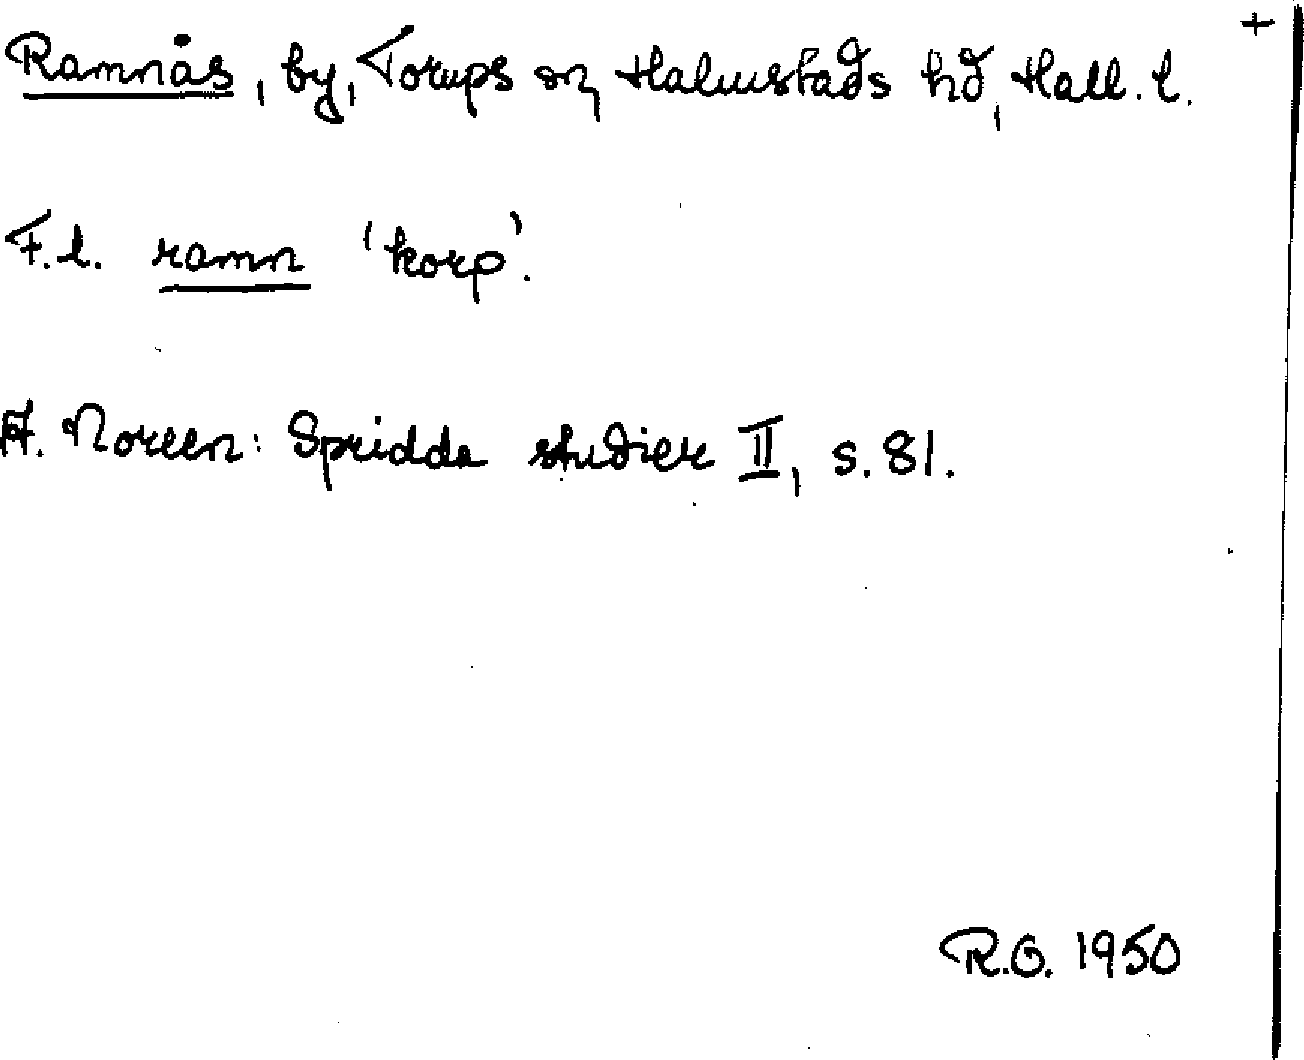 +
Ramnås, by, Torups sn, Halmstads hd, Hall. l.
F.l. ramn 'korp'.
A. Noreen: Spridda studier II, s. 81.
R.O. 1950